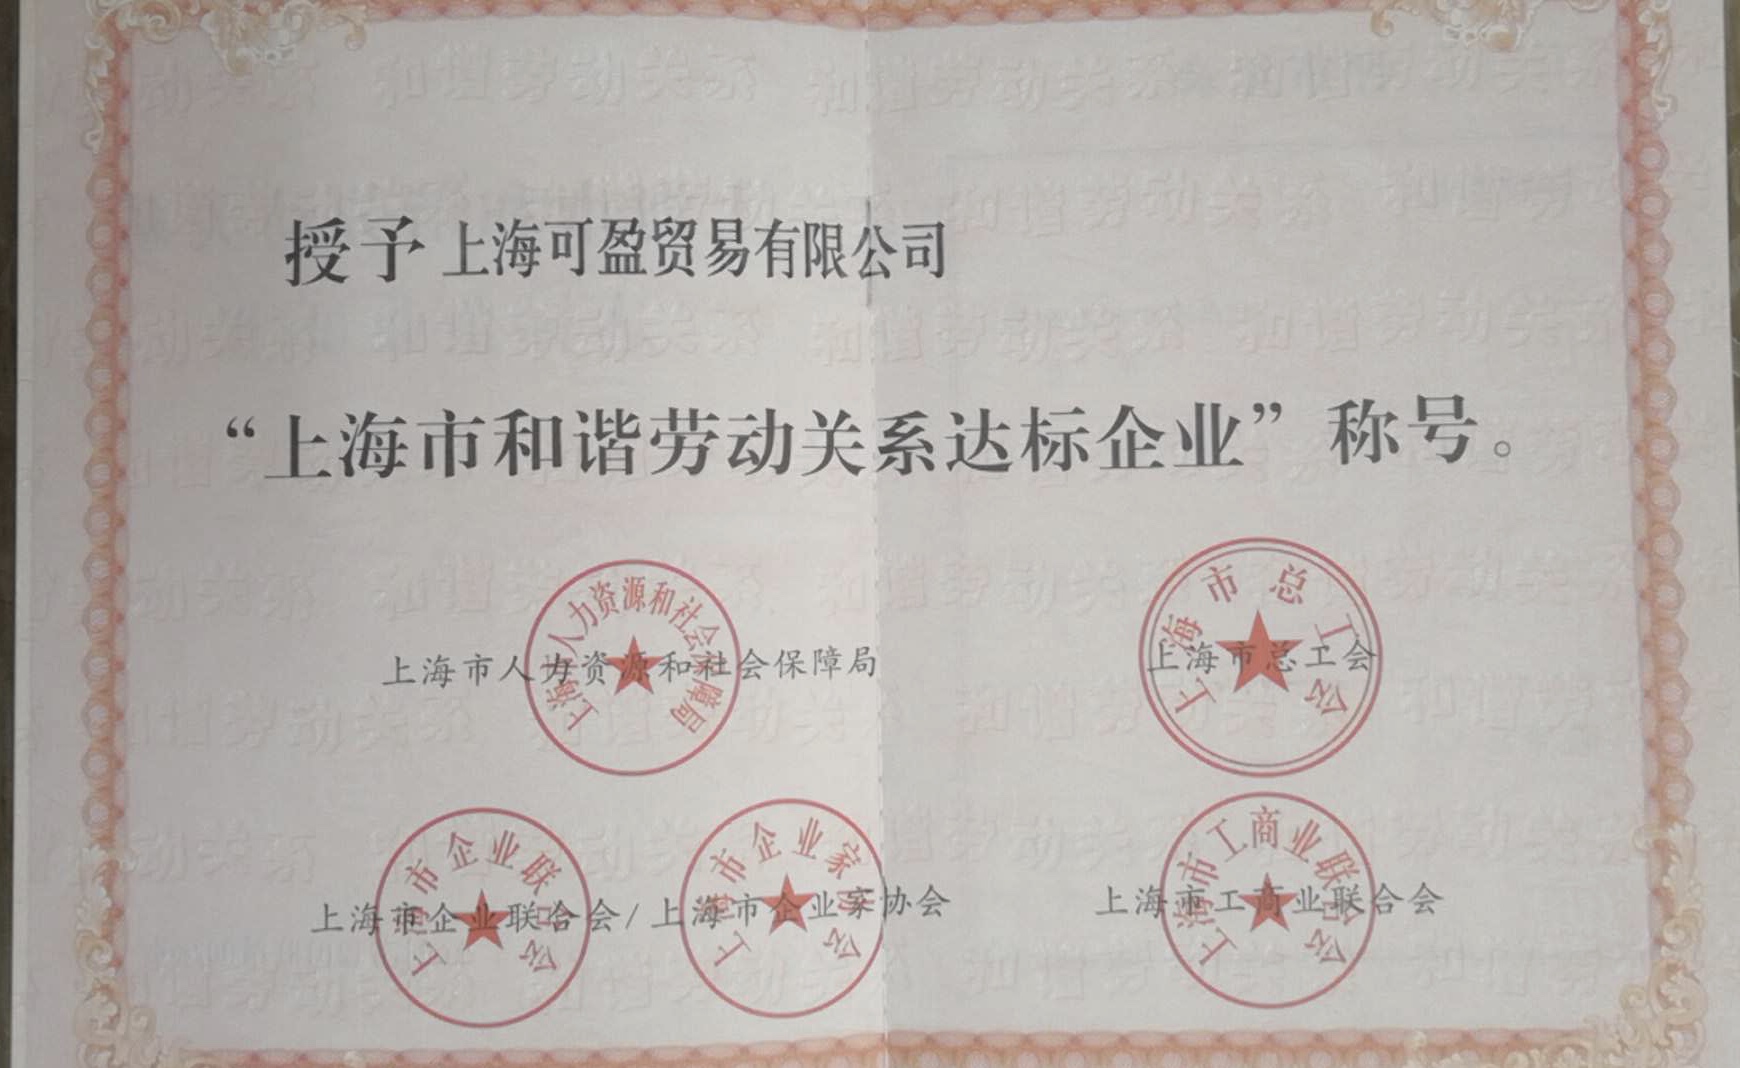 授予 上海可盈贸易有限公司
“上海市和谐劳动关系达标企业”称号。
上海市人力资源和社会保障局
上海市人力资源和社会保障局
上海市总工会
上海市总工会
上海市企业联合会
上海市企业家协会
上海市工商业联合会
上海市企业联合会/上海市企业家协会
上海市工商业联合会
和谐劳动关系